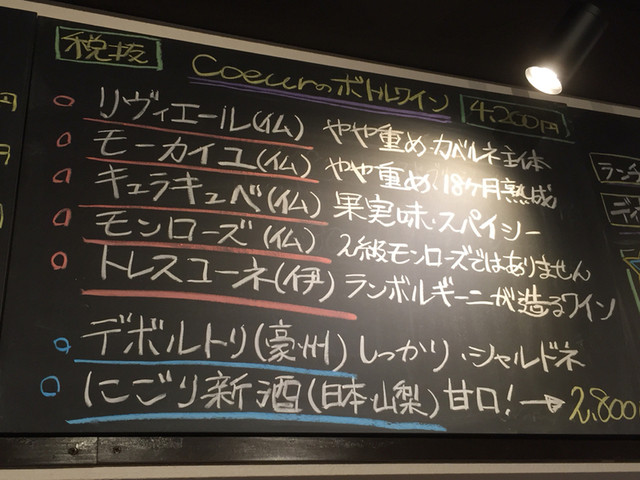 税抜
Coeurのボトルワイン 4,200円
リヴィエール(仏) やや重め・カベルネ主体
モーカイユ(仏) やや重め、18ヶ月熟成
キュラキュベ(仏) 果実味・スパイシー
モンローズ(仏) 2級モンローズではありません
トレスコーネ(伊) ランボルギーニが造るワイン
デボルトリ(豪州) しっかり・シャルドネ
にごり新酒(日本・山梨) 甘口! → 2,800
円
円
ランチ